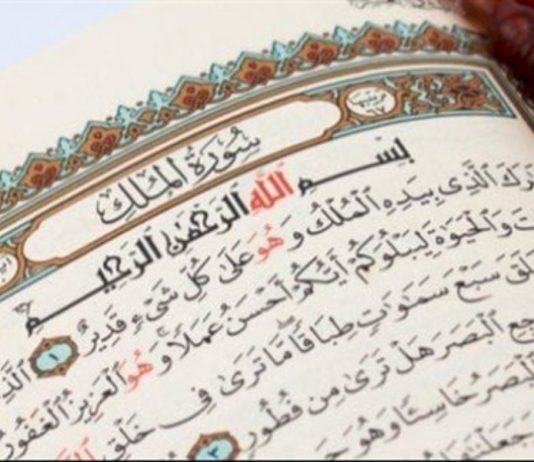 سُورَةُ الْمُلْكِ
بِسْمِ اللَّهِ الرَّحْمَٰنِ الرَّحِيمِ
الَّذِي بِيَدِهِ الْمُلْكُ وَهُوَ عَلَىٰ كُلِّ شَيْءٍ قَدِيرٌ ١
وَالْحَيَوٰةَ لِيَبْلُوَكُمْ أَيُّكُمْ أَحْسَنُ عَمَلًا وَهُوَ الْعَزِيزُ الْغَفُورُ
سَبْعَ سَمَٰوَٰتٍ طِبَاقًا مَّا تَرَىٰ فِي خَلْقِ
الْبَصَرَ هَلْ تَرَىٰ مِن فُطُورٍ ٣
الْبَصَرُ خَاسِئًا وَهُوَ